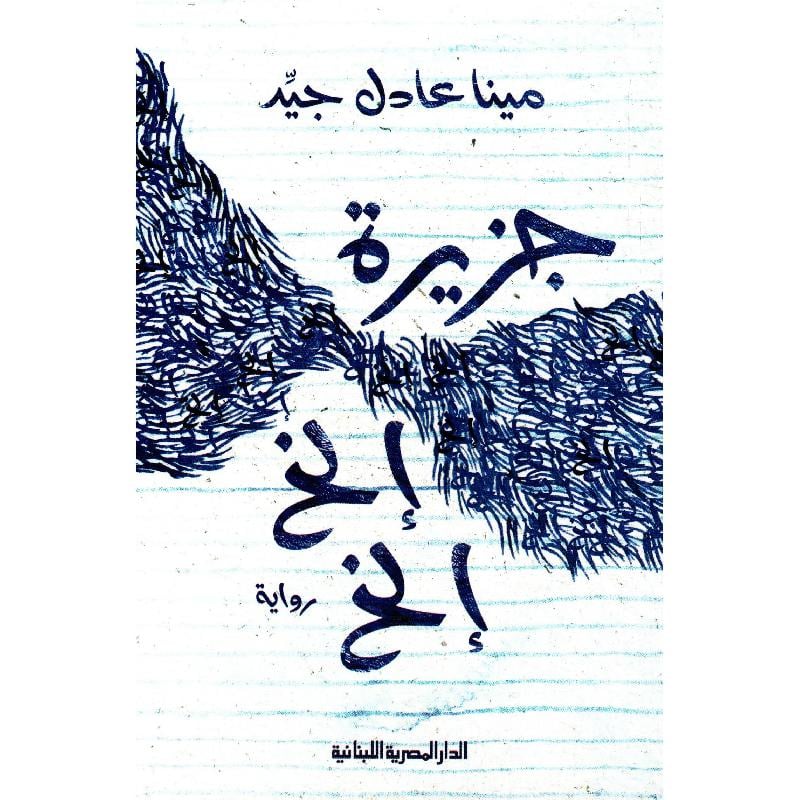 مينا عادل جيِّد
جزيرة
إلخ
إلخ
رواية
الدار المصرية اللبنانية